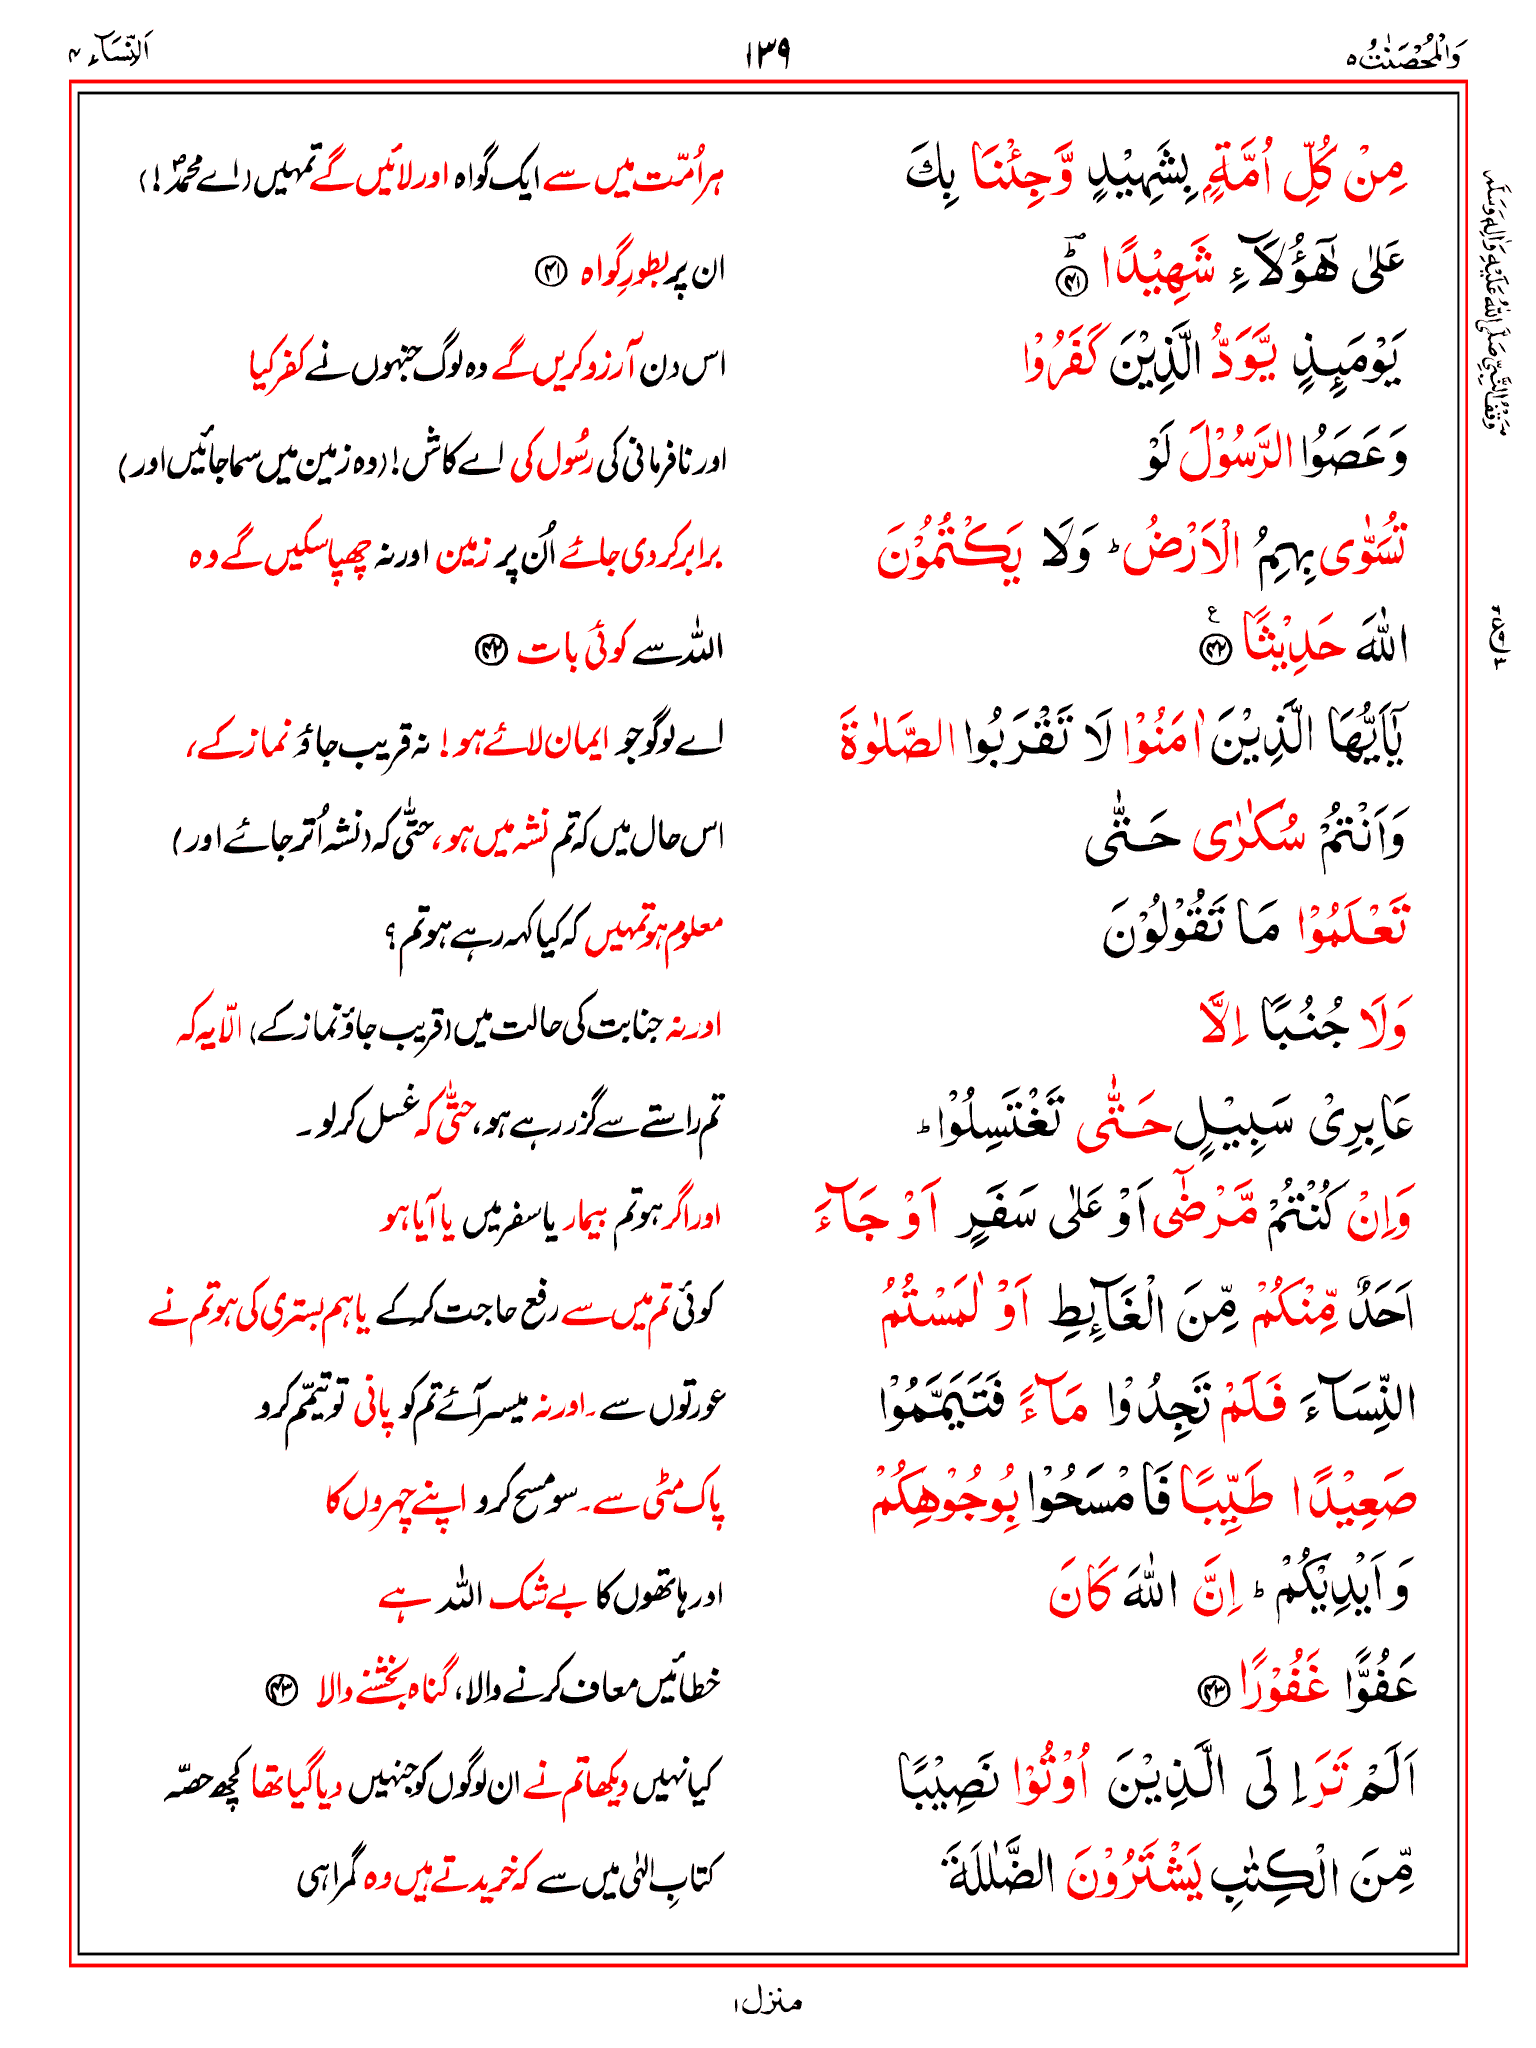 وَالْمُحْصَنٰتُ ۵ ۱۳۹ اَلنِّسَآء ۴
مِنْ كُلِّ اُمَّةٍۭ بِشَهِيْدٍ وَّجِئْنَا بِكَ ہر اُمّت میں سے ایک گواہ اور لائیں گے تمہیں (اے محمدؐ!)
عَلٰى هٰٓؤُلَآءِ شَهِيْدًا ؕؔ ۴۱ ان پر بطورِ گواہ ۴۱
يَوْمَىِٕذٍ يَّوَدُّ الَّذِيْنَ كَفَرُوْا اس دن آرزو کریں گے وہ لوگ جنہوں نے کفر کیا
وَعَصَوُا الرَّسُوْلَ لَوْ اور نافرمانی کی رسُول کی اے کاش! (وہ زمین میں سما جائیں اور)
تُسَوّٰى بِهِمُ الْاَرْضُ ؕ وَلَا يَكْتُمُوْنَ برابر کردی جائے اُن پر زمین اور نہ چھپا سکیں گے وہ
اللّٰهَ حَدِيْثًا ۴۲ ع اللّٰہ سے کوئی بات ۴۲
يٰۤاَيُّهَا الَّذِيْنَ اٰمَنُوْا لَا تَقْرَبُوا الصَّلٰوةَ اے لوگو جو ایمان لائے ہو! نہ قریب جاؤ نماز کے،
وَاَنْتُمْ سُكٰرٰى حَتّٰى اس حال میں کہ تم نشہ میں ہو، حتّٰی کہ (نشہ اُتر جائے اور)
تَعْلَمُوْا مَا تَقُوْلُوْنَ معلوم ہو تمہیں کہ کیا کہہ رہے ہو تم؟
وَلَا جُنُبًا اِلَّا اور نہ جنابت کی حالت میں (قریب جاؤ نماز کے) الّا یہ کہ
عَابِرِيْ سَبِيْلٍ حَتّٰى تَغْتَسِلُوْا ؕ تم راستے سے گزر رہے ہو، حتّٰی کہ غسل کرلو۔
وَاِنْ كُنْتُمْ مَّرْضٰۤى اَوْ عَلٰى سَفَرٍ اَوْ جَآءَ اور اگر ہو تم بیمار یا سفر میں یا آیا ہو
اَحَدٌ مِّنْكُمْ مِّنَ الْغَآىِٕطِ اَوْ لٰمَسْتُمُ کوئی تم میں سے رفع حاجت کر کے یا ہم بستری کی ہو تم نے
النِّسَآءَ فَلَمْ تَجِدُوْا مَآءً فَتَيَمَّمُوْا عورتوں سے۔ اور نہ میسر آئے تم کو پانی تو تیمّم کرو
صَعِيْدًا طَيِّبًا فَامْسَحُوْا بِوُجُوْهِكُمْ پاک مٹی سے۔ سو مسح کرو اپنے چہروں کا
وَاَيْدِيْكُمْ ؕ اِنَّ اللّٰهَ كَانَ اور ہاتھوں کا بے شک اللّٰہ ہے
عَفُوًّا غَفُوْرًا ۴۳ خطائیں معاف کرنے والا، گناہ بخشنے والا ۴۳
اَلَمْ تَرَ اِلَى الَّذِيْنَ اُوْتُوْا نَصِيْبًا کیا نہیں دیکھا تم نے ان لوگوں کو جنہیں دیا گیا تھا کچھ حصّہ
مِّنَ الْكِتٰبِ يَشْتَرُوْنَ الضَّلٰلَةَ کتابِ الٰہی میں سے کہ خریدتے ہیں وہ گمراہی
منزل ۱
وقف النبي صَلَّى اللّٰهُ عَلَيْهِ وَاٰلِهٖ وَسَلَّمَ